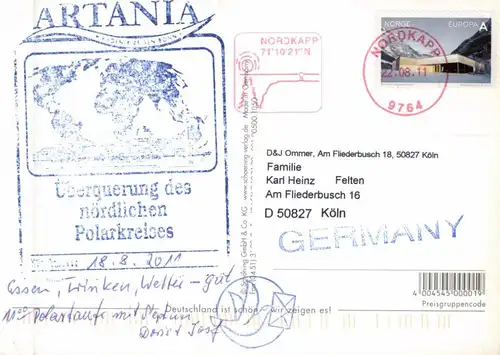 ARTANIA
Überquerung des
nördlichen
Polarkreises
18.8.2011
Essen, trinken, Wetter - gut
1100 Polartaufe mit Neptun
Doris + Josef
NORDKAPP
71°10'21"N
NORGE
EUROPA A
NORDKAPP
22.08.11
9764
D&J Ommer, Am Fliederbusch 18, 50827 Köln
Familie
Karl Heinz Felten
Am Fliederbusch 16
D 50827 Köln
GERMANY
4 004545 000019
Preisgruppencode
Deutschland ist schön - wir zeigen es!
Schöning GmbH & Co. KG · www.schoening-verlag.de · Made in Germany